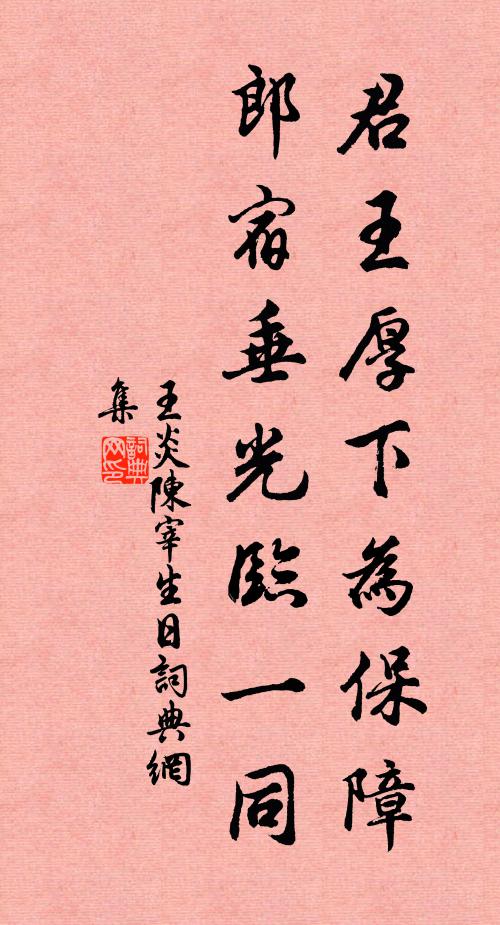 君王厚下為保障
郎宿垂光臨一同
王炎陳宰生日詞典網
集
詞典网印